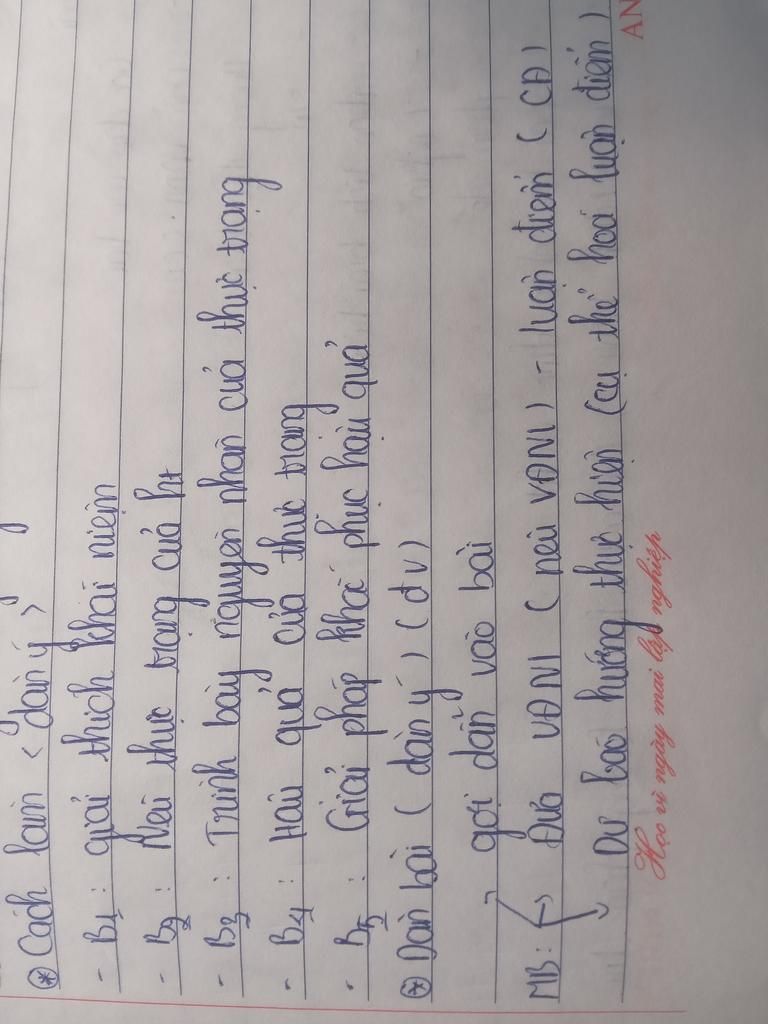 ⊛ Cách làm < dàn ý >
- B1 : giải thích khái niệm
- B2 : Nêu thực trạng của ht
- B3 : Trình bày nguyên nhân của thực trạng
- B4 : Hậu quả của thực trạng
- B5 : Giải pháp khắc phục hậu quả
⊛ Dàn bài ( dàn ý ) ( đv )
→ gợi dẫn vào bài
MB : → Đưa VĐNL ( nêu VĐNL ) - luận điểm ( CĐ )
→ Dự báo hướng thực hiện (cụ thể hoá luận điểm )
Học vì ngày mai lập nghiệp
AN